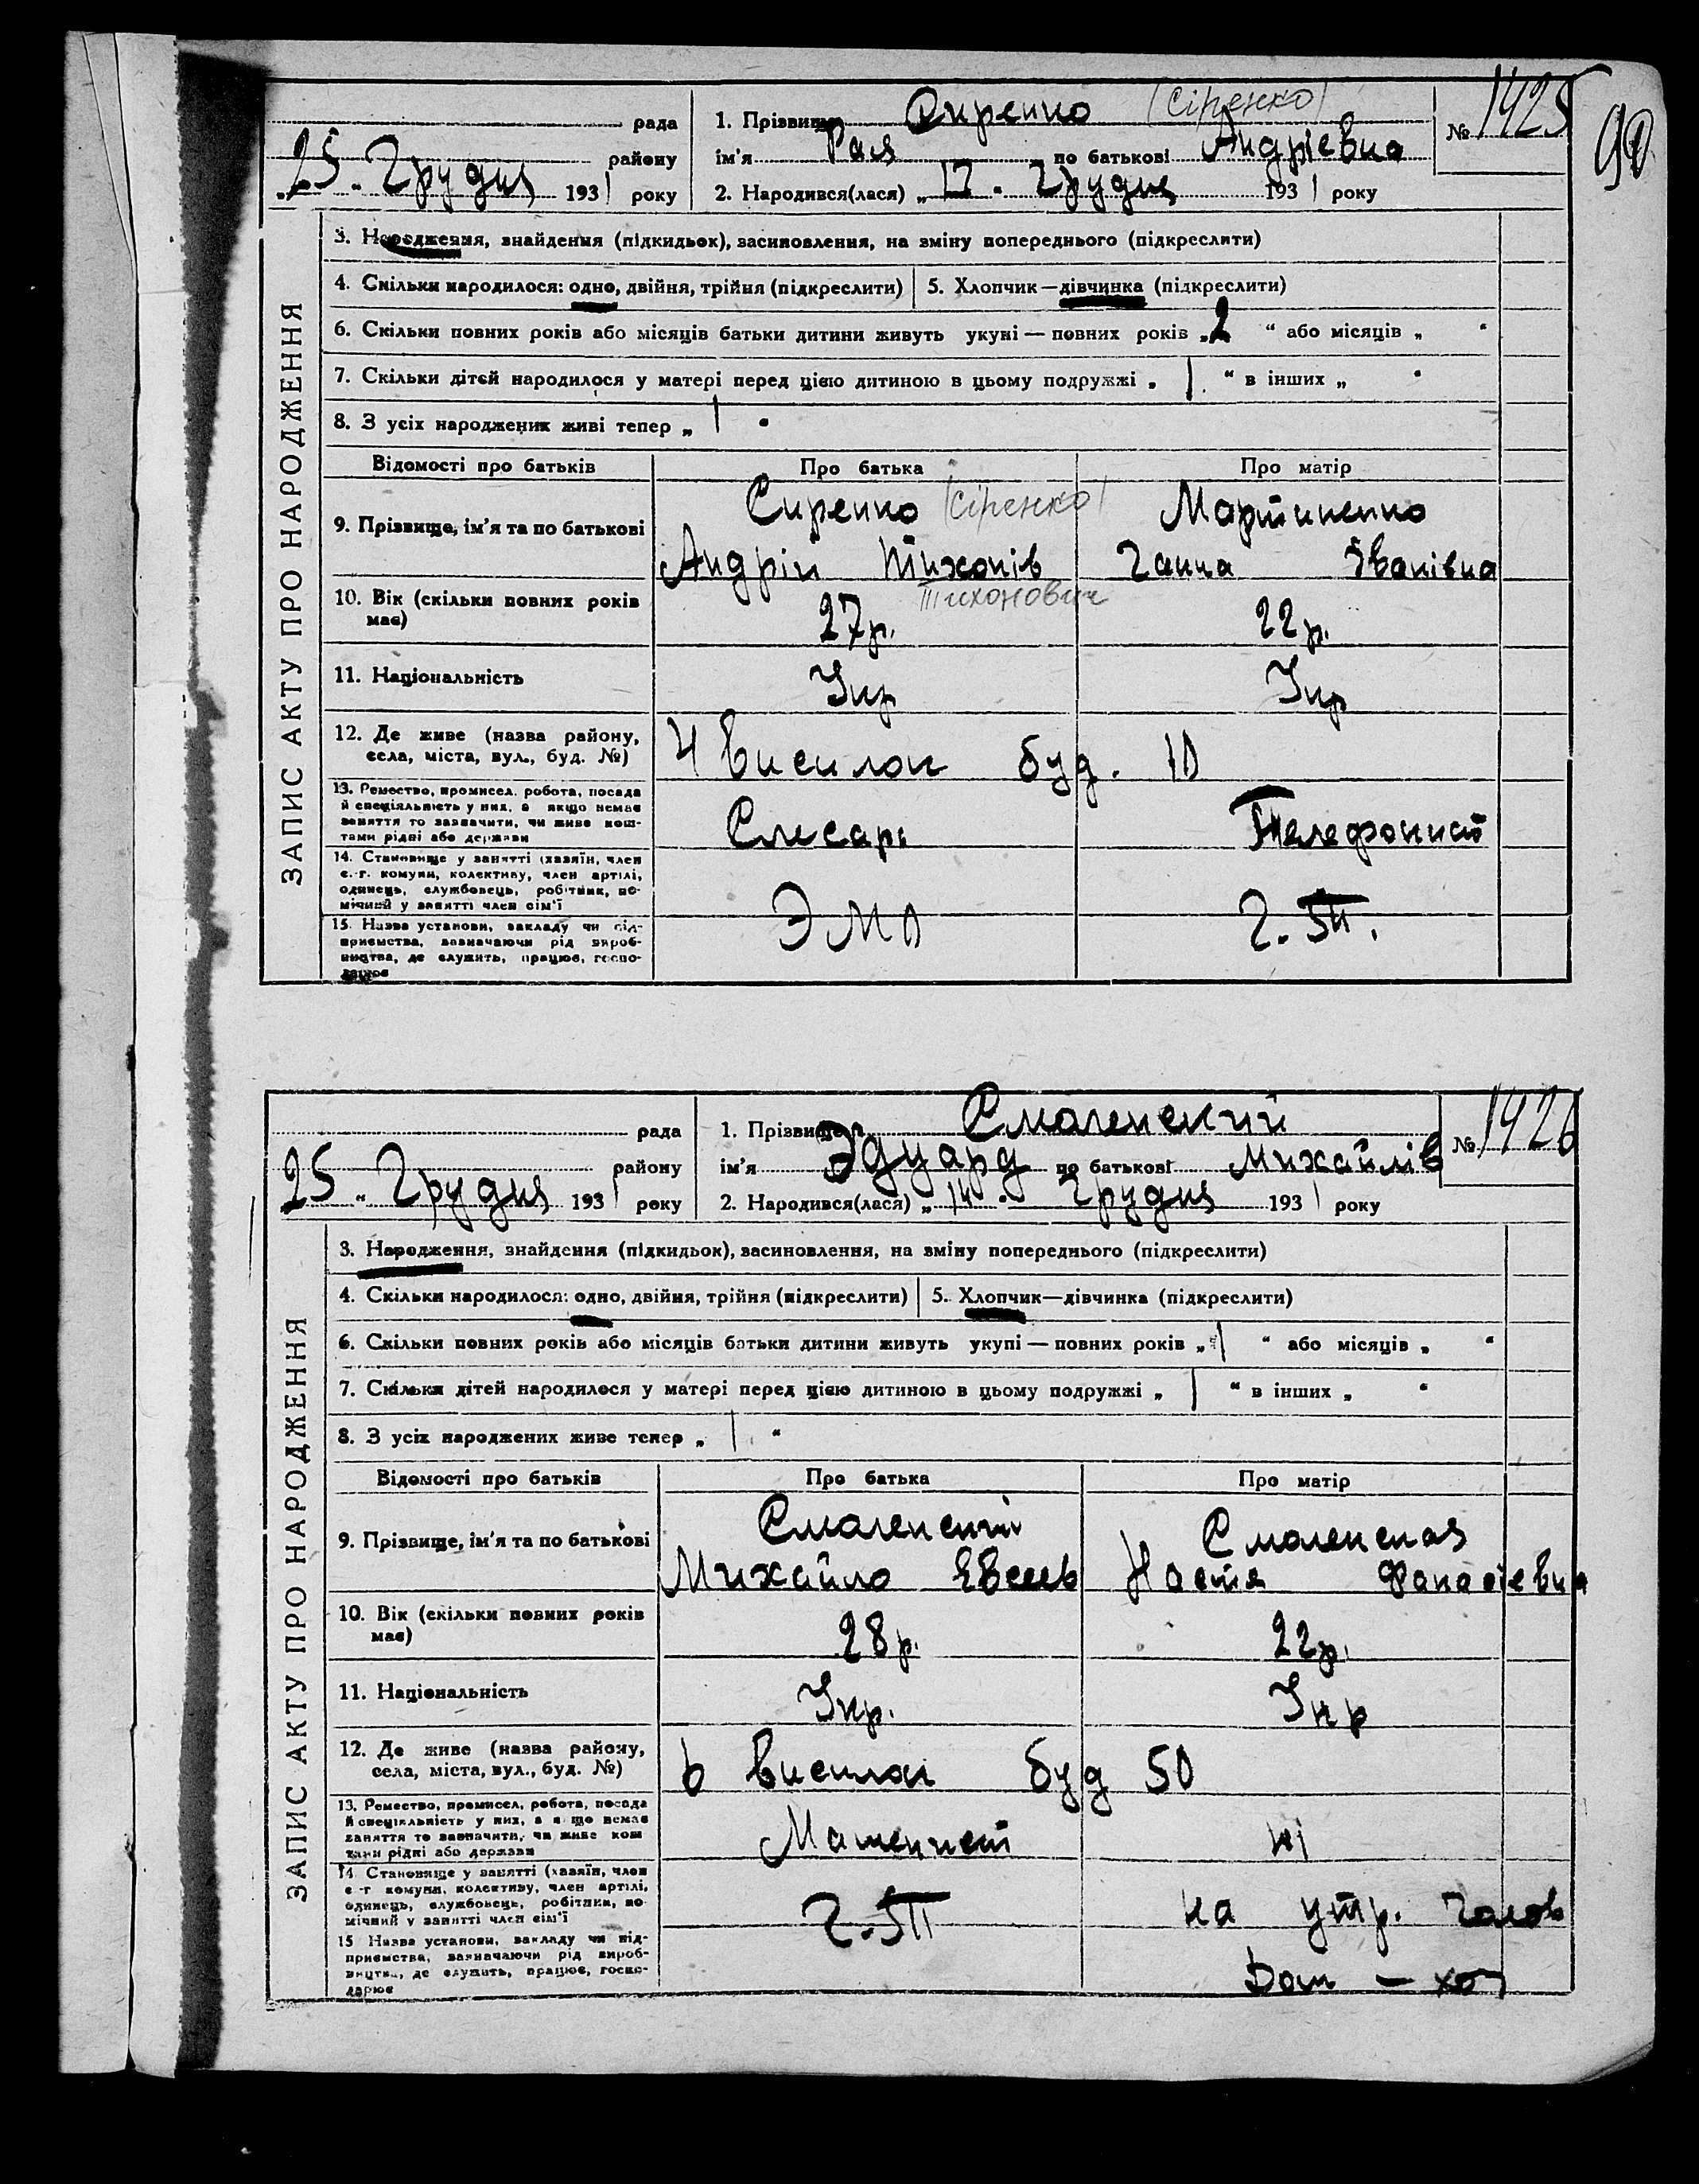 90
рада
району
25 " Грудня 1931 року
1. Прізвище Сиренко (Сіренко)
ім'я Рая по батькові Андріевна
2. Народився(лася) „ 12 " Грудня 1931 року
№ 1425
ЗАПИС АКТУ ПРО НАРОДЖЕННЯ
3. Народження, знайдення (підкидьок), засиновлення, на зміну попереднього (підкреслити)
4. Скільки народилося: одно, двійня, трійня (підкреслити) 5. Хлопчик—дівчинка (підкреслити)
6. Скільки повних років або місяців батьки дитини живуть укупі — повних років „ 2 “ або місяців „ “
7. Скільки дітей народилося у матері перед цією дитиною в цьому подружжі „ 1 “ в інших „ “
8. З усіх народжених живі тепер „ 1 “
Відомості про батьків Про батька Про матір
9. Прізвище, ім'я та по батькові
Сиренко (Сіренко) Мартиненко
Андрій Тихонів Ганна Іванівна
Тихонович
10. Вік (скільки повних років має) 27р. 22р.
11. Національність Укр Укр
12. Де живе (назва району, села, міста, вул., буд. №) 4 висилок буд. 10
13. Ремество, промисел, робота, посада
й спеціяльність у них, а якщо немає
заняття то зазначити, чи живе кош-
тами рідні або держави
Слесарь Телефонист
14. Становище у занятті (хазяїн, член
с.-г. комуни, колективу, член артілі,
одинець, службовець, робітник, по-
мічний у занятті член сім'ї
15. Назва установи, закладу чи під-
приємства, зазначаючи рід вироб-
ництва, де служить, працює, госпо-
дарює
ЭМО Г.ЗП.
рада
району
25 " Грудня 1931 року
1. Прізвище Смоленский
ім'я Эдуард по батькові Михайлів
2. Народився(лася) „ 14 " Грудня 1931 року
№ 1426
ЗАПИС АКТУ ПРО НАРОДЖЕННЯ
3. Народження, знайдення (підкидьок), засиновлення, на зміну попереднього (підкреслити)
4. Скільки народилося: одно, двійня, трійня (підкреслити) 5. Хлопчик—дівчинка (підкреслити)
6. Скільки повних років або місяців батьки дитини живуть укупі — повних років „ 1 “ або місяців „ “
7. Скільки дітей народилося у матері перед цією дитиною в цьому подружжі „ 1 “ в інших „ “
8. З усіх народжених живе тепер „ 1 “
Відомості про батьків Про батька Про матір
9. Прізвище, ім'я та по батькові
Смоленский Смоленская
Михайло Настя Фанасіевна
10. Вік (скільки повних років має) 28р. 22р.
11. Національність Укр. Укр
12. Де живе (назва району, села, міста, вул., буд. №) 6 висилок буд 50
13. Ремество, промисел, робота, посада
й спеціяльність у них, а якщо немає
заняття то зазначити, чи живе кош
тами рідні або держави
Машенист ні
14. Становище у занятті (хазяїн, член
с.-г. комуни, колективу, член артілі,
одинець, службовець, робітник, по-
мічний у занятті член сім'ї
Г.ЗП на утр. Чолов
15. Назва установи, закладу чи під-
приємства, зазначаючи рід вироб-
ництва, де служить, працює, госпо-
дарює
Дом — хоз